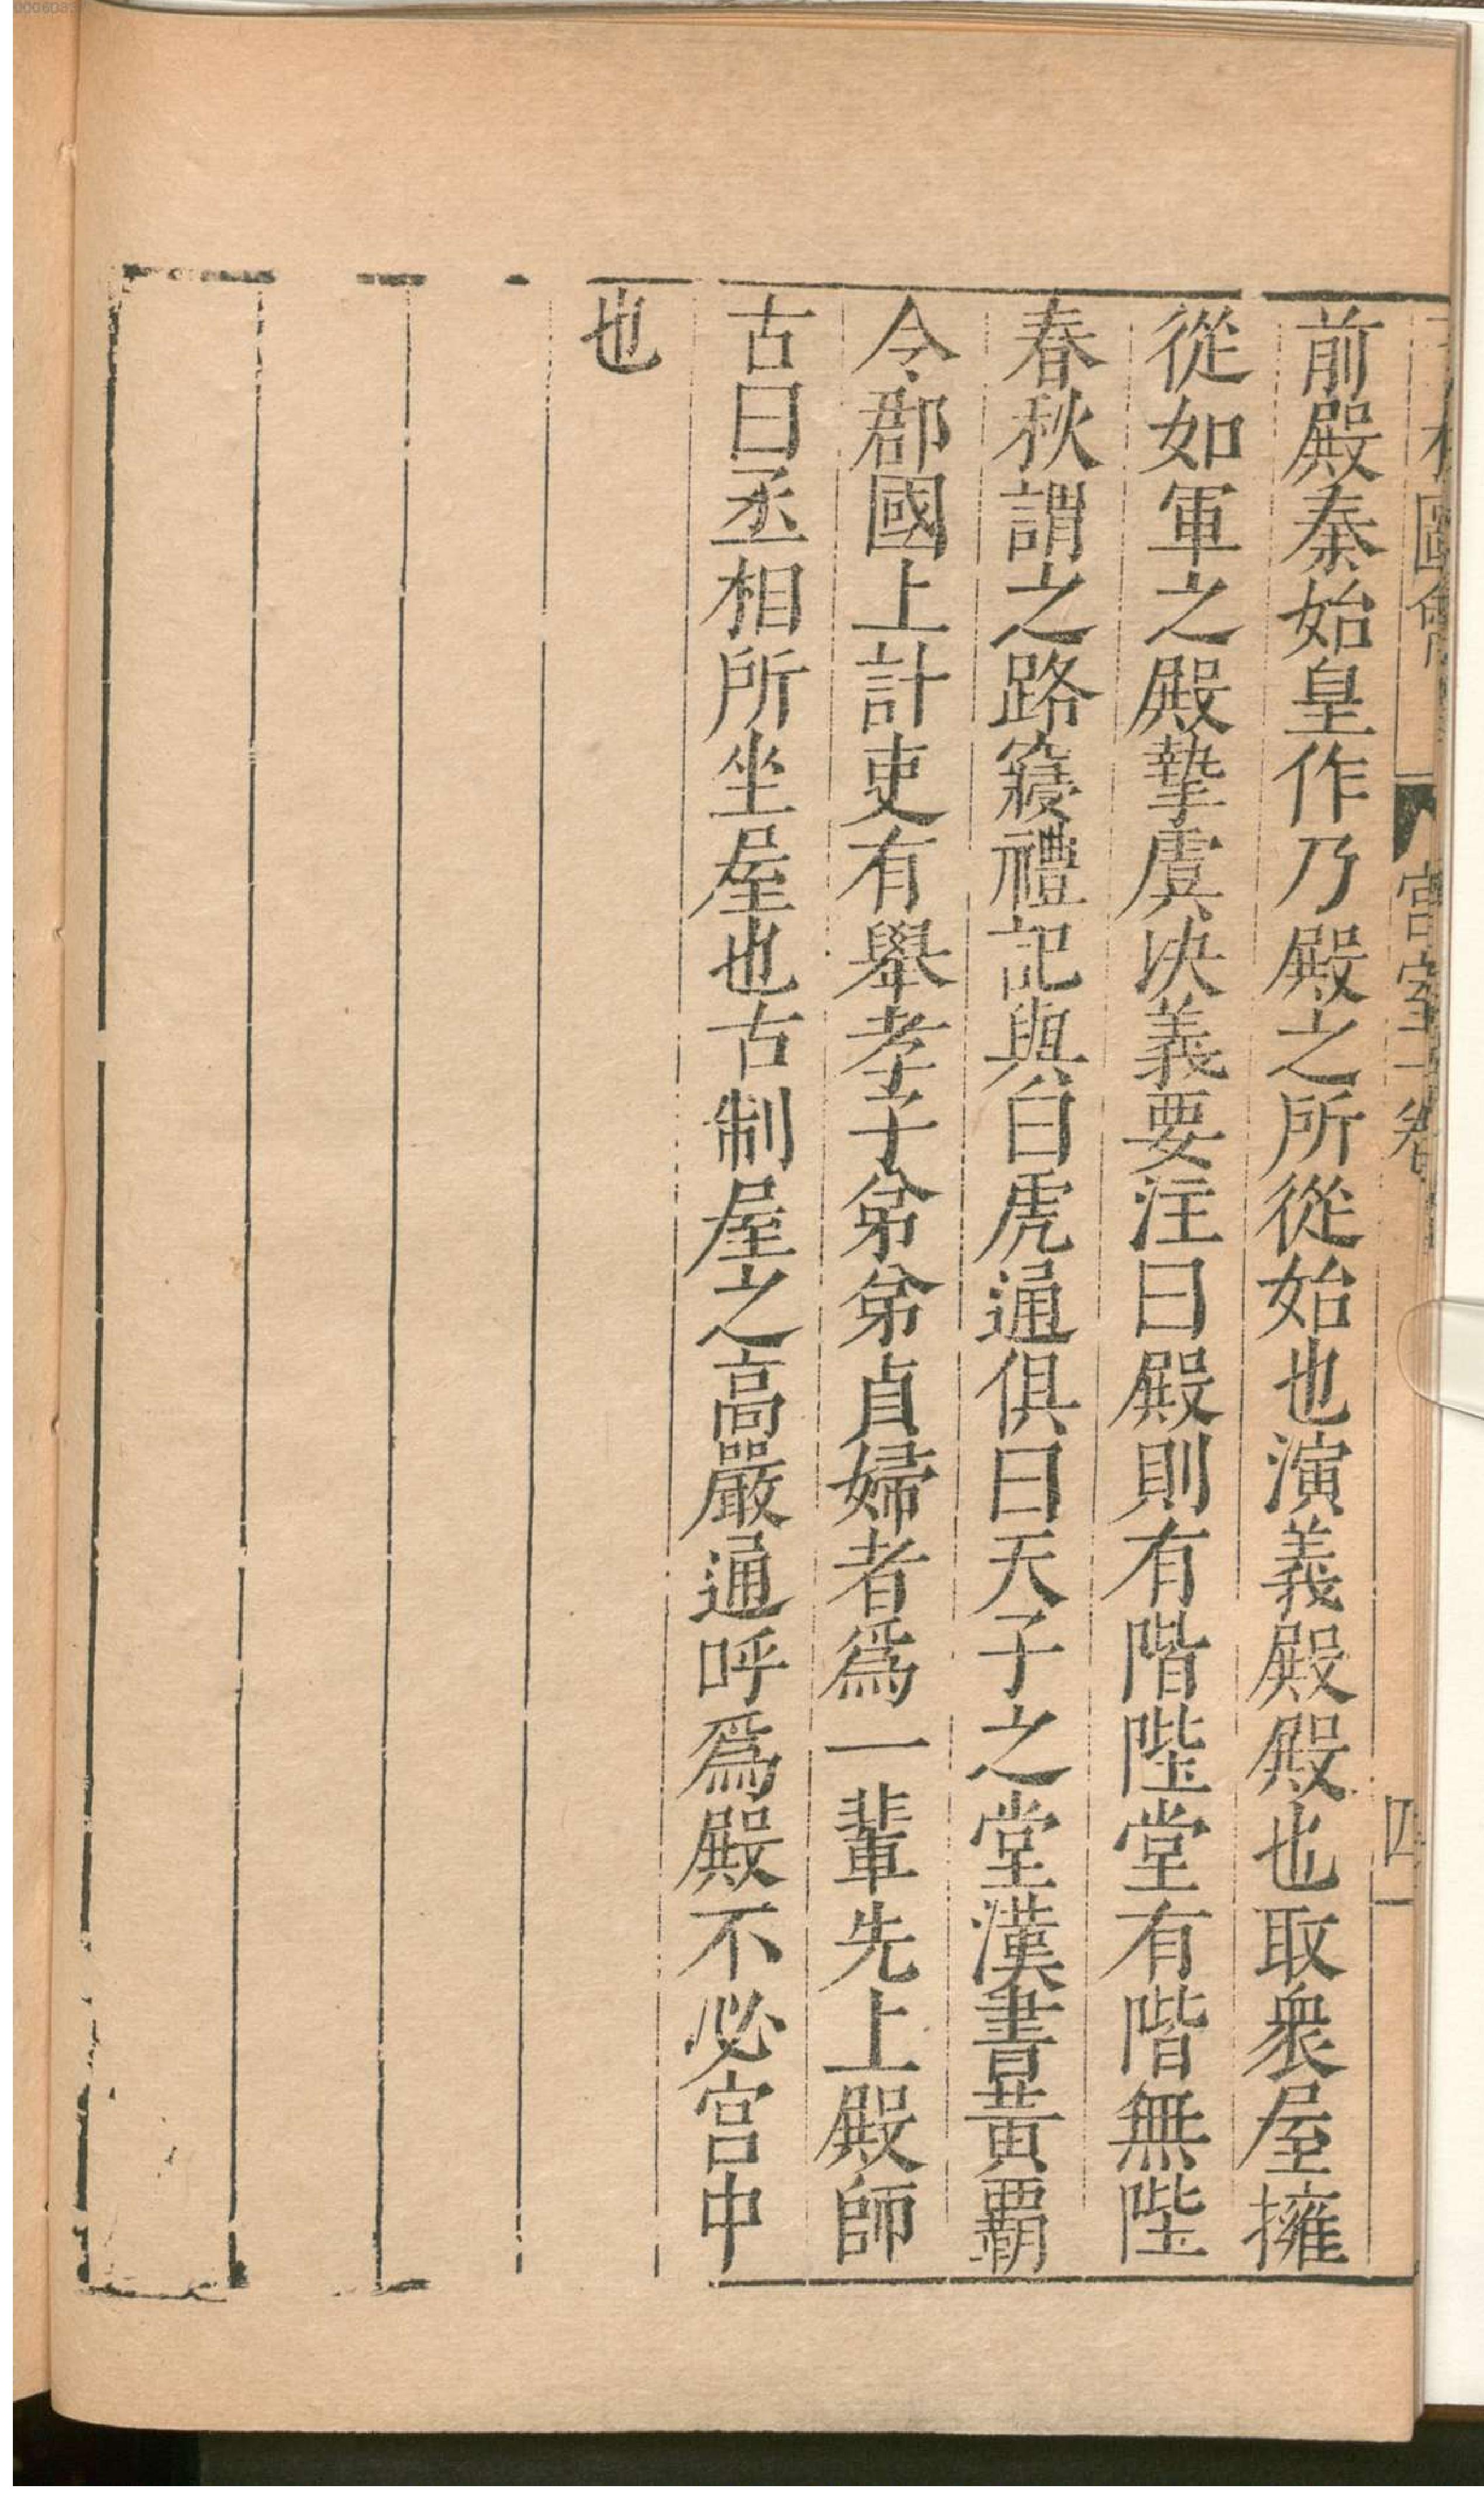 圖會 宮室一卷 四
前殿秦始皇作乃殿之所從始也演義殿殿也取衆屋擁
從如軍之殿摯虞决義要注曰殿則有階陛堂有階無陛
春秋謂之路寢禮記與白虎通俱曰天子之堂漢書黃覇
令郡國上計吏有舉孝子弟弟貞婦者爲一輩先上殿師
古曰丞相所坐屋也古制屋之高嚴通呼爲殿不必宮中
也